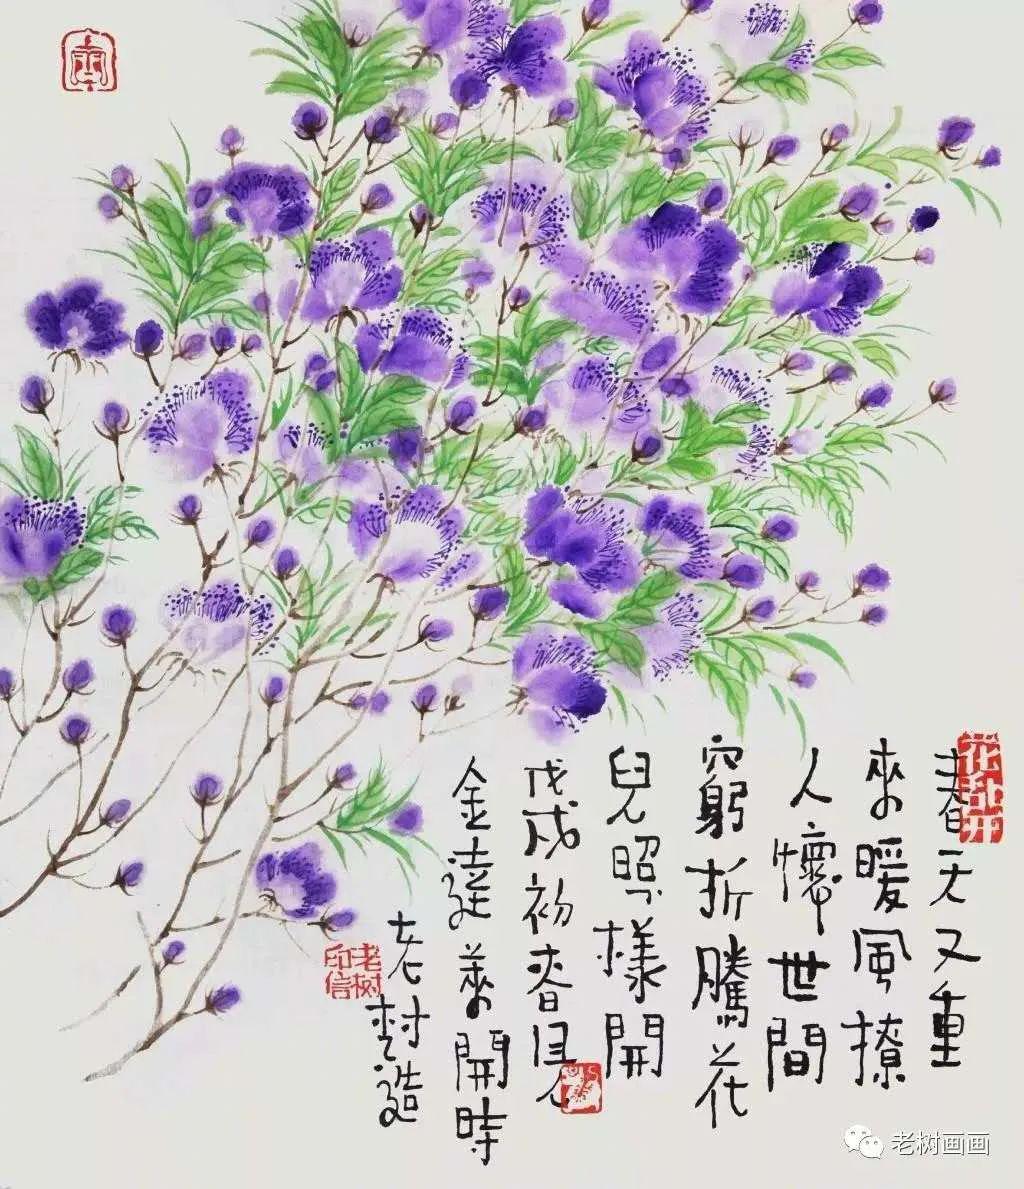 花乱开
春天又重
來暖風撩
人懷世間
窮折騰花
兒照樣開
戊戌初春見
金蓮華開時
老树造
老树
印信
老树画画